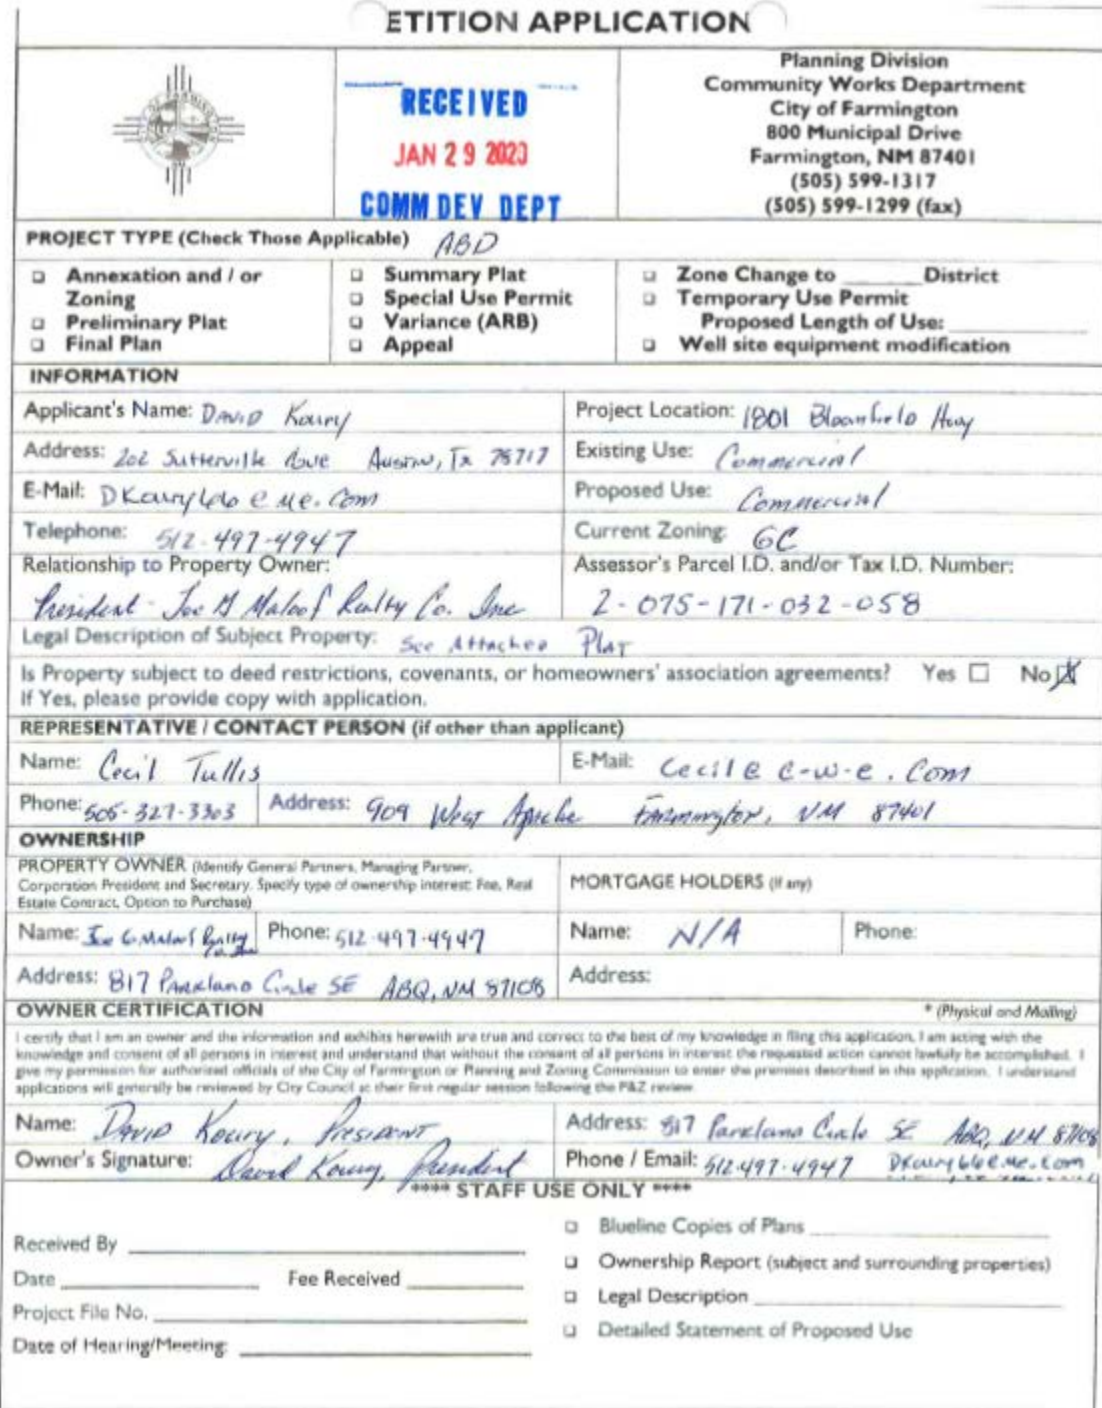 ETITION APPLICATION
RECEIVED
JAN 29 2020
COMM DEV DEPT
Planning Division
Community Works Department
City of Farmington
800 Municipal Drive
Farmington, NM 87401
(505) 599-1317
(505) 599-1299 (fax)
PROJECT TYPE (Check Those Applicable) ABD
Annexation and / or
Zoning
Preliminary Plat
Final Plan
Summary Plat
Special Use Permit
Variance (ARB)
Appeal
Zone Change to ______ District
Temporary Use Permit
Proposed Length of Use: ______
Well site equipment modification
INFORMATION
Applicant's Name: David Koury
Project Location: 1801 Bloomfield Hwy
Address: 202 Sutterville Cove Austin, Tx 78717
Existing Use: Commercial
E-Mail:
Proposed Use: Commercial
Telephone: 512-497-4947
Current Zoning: GC
Relationship to Property Owner:
President - Joe G Maloof Realty Co. Inc
Assessor's Parcel I.D. and/or Tax I.D. Number:
2-075-171-032-058
Legal Description of Subject Property: See Attached Plat
Is Property subject to deed restrictions, covenants, or homeowners' association agreements? Yes No
If Yes, please provide copy with application.
REPRESENTATIVE / CONTACT PERSON (if other than applicant)
Name: Cecil Tullis
E-Mail: Cecil@c-w-e.com
Phone: 505-327-3303
Address: 909 West Apache Farmington, NM 87401
OWNERSHIP
PROPERTY OWNER (Identify General Partners, Managing Partner,
Corporation President and Secretary. Specify type of ownership interest: Fee, Real
Estate Contract, Option to Purchase)
MORTGAGE HOLDERS (If any)
Name: Joe G Maloof Realty Co. Inc
Phone: 512-497-4947
Name: N/A
Phone:
Address: 817 Parkland Circle SE ABQ, NM 87108
Address:
OWNER CERTIFICATION
* (Physical and Mailing)
I certify that I am an owner and the information and exhibits herewith are true and correct to the best of my knowledge in filing this application. I am acting with the
knowledge and consent of all persons in interest and understand that without the consent of all persons in interest the requested action cannot lawfully be accomplished. I
give my permission for authorized officials of the City of Farmington or Planning and Zoning Commission to enter the premises described in this application. I understand
applications will generally be reviewed by City Council at their first regular session following the P&Z review.
Name: David Koury, President
Address: 817 Parkland Circle SE ABQ, NM 87108
Owner's Signature: David Koury, President
Phone / Email: 512-497-4947
**** STAFF USE ONLY ****
Received By ______
Date ______ Fee Received ______
Project File No. ______
Date of Hearing/Meeting: ______
Blueline Copies of Plans ______
Ownership Report (subject and surrounding properties)
Legal Description ______
Detailed Statement of Proposed Use